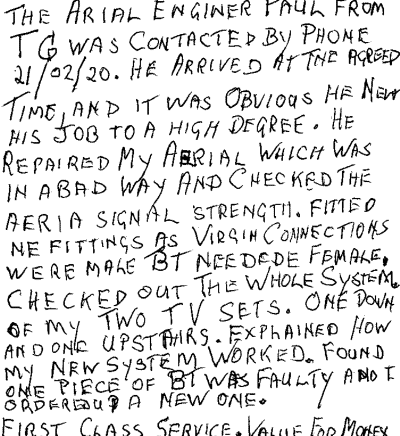 THE ARIAL ENGINER PAUL FROM
TG WAS CONTACTED BY PHONE
21/02/20. HE ARRIVED AT THE AGREED
TIME, AND IT WAS OBVIOUS HE NEW
HIS JOB TO A HIGH DEGREE. HE
REPAIRED MY AERIAL WHICH WAS
IN A BAD WAY AND CHECKED THE
AERIA SIGNAL STRENGTH. FITTED
NE FITTINGS AS VIRGIN CONNECTIONS
WERE MALE BT NEEDEDE FEMALE.
CHECKED OUT THE WHOLE SYSTEM.
OF MY TWO TV SETS. ONE DOWN
AND ONE UPSTAIRS. EXPLAINED HOW
MY NEW SYSTEM WORKED. FOUND
ONE PIECE OF BT WAS FAULTY AND I
ORDERED A NEW ONE.
FIRST CLASS SERVICE. VALUE FOR MONEY